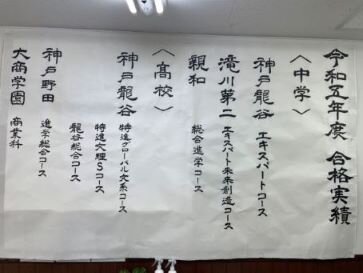 令和五年度 合格実績
〈中学〉
神戸龍谷 エキスパートコース
滝川第二 エキスパート未来創造コース
親和 総合進学コース
〈高校〉
神戸龍谷 特進グローバル文系コース
特進文理Sコース
龍谷総合コース
神戸野田 進学総合コース
大商学園 商業科